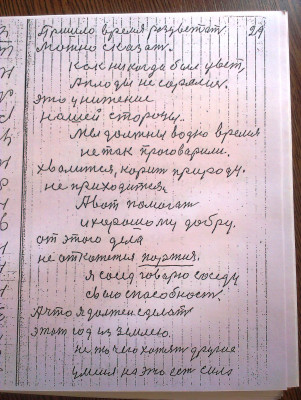 29
Пришло время розцветат
Можно сказат.
Как никогда был цвет,
А плоды не сорялис.
это унижение
нашей стороны.
Мы должны водно время
не так проговорили.
хвалится, корит природу.
не приходится.
А вот помогат
и хорошому добру.
от этого дела
не откажется партия.
Я сосед говорю соседу
свою способност.
А что я должен сделат
этот год из землею.
не то чего хотят другие
у меня на это ест сила